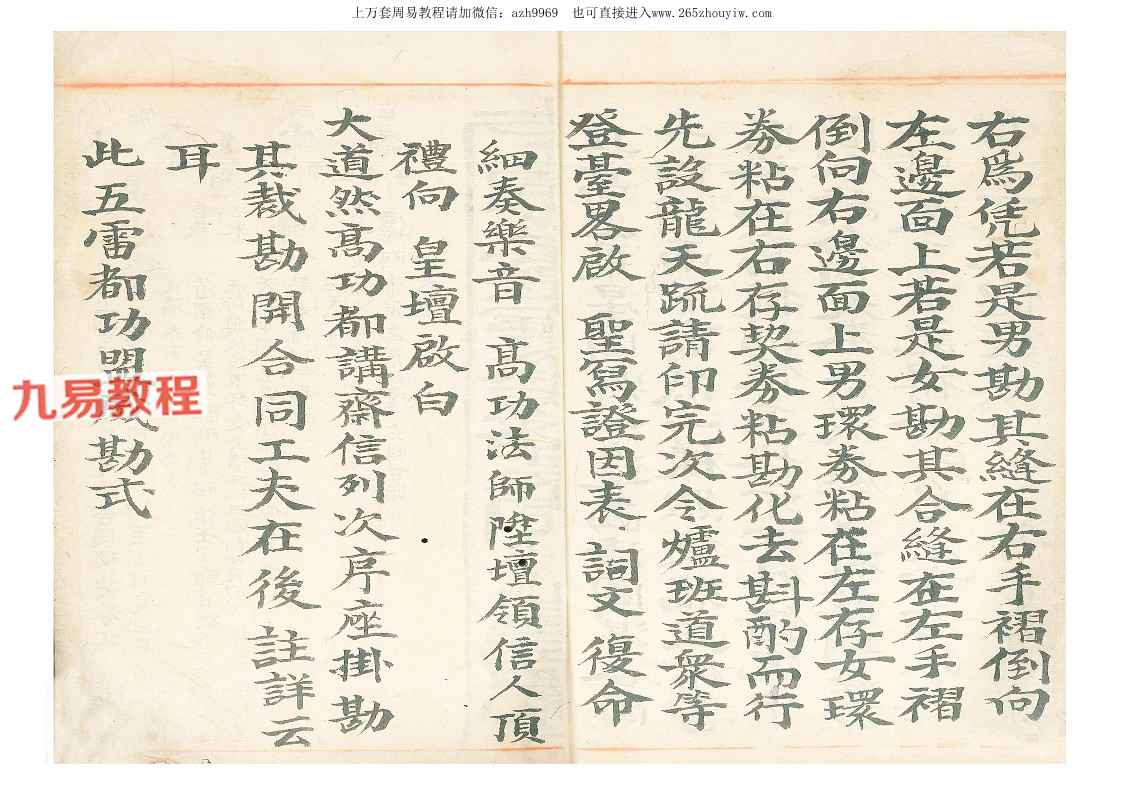 上万套周易教程请加微信：azh9969 也可直接进入www.265zhouyiw.com
右爲凭若是男勘其縫在右手褶倒向
左邊面上若是女勘其合縫在左手褶
倒向右邊面上男環券粘在左存女環
券粘在右存契券粘勘化去斟酌而行
先設龍天䟽請印完次令爐班道衆等
登臺畧啟 聖寫證因表 詞文復命
細奏樂音 高功法師陞壇領信人頂
禮向 皇壇啟白
大道然髙功都講齋信列次序座掛勘
其裁勘開合同工夫在後註詳云
耳
此五雷都功盟 勘式
九易教程